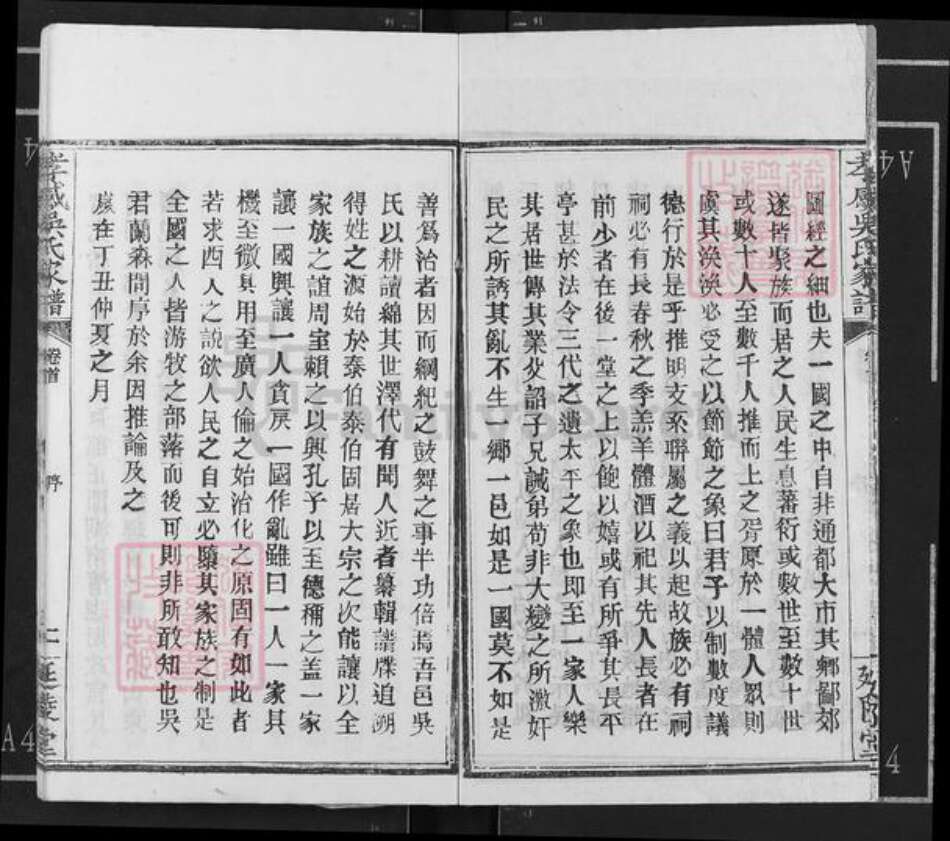 圖經之細也夫一國之中自非通都大市其鄉鄙郊
遂皆聚族而居之人民生息蕃衍或數世至數十世
或數十人至數千人推而上之胥原於一體人眾則
虞其渙渙必受之以節節之象曰君子以制數度議
德行於是乎推明支系聯屬之義以起故族必有祠
祠必有長春秋之季羔羊體酒以祀其先人長者在
前少者在後一堂之上以飽以嬉或有所爭其長平
亭甚於法令三代之遺太平之象也即至一家人樂
其居世傳其業父詔子兄誡弟苟非大變之所激奸
民之所誘其亂不生一鄉一邑如是一國莫不如是
善為治者因而綱紀之鼓舞之事半功倍焉吾邑吳
氏以耕讀綿其世澤代有聞人近者纂輯譜牒追溯
得姓之源始於泰伯泰伯固居大宗之次能讓以全
家族之誼周室賴之以興孔子以至德稱之蓋一家
讓一國興讓一人貪戾一國作亂雖曰一人一家其
機至微其用至廣人倫之始治化之原固有如此者
若求西人之說欲人民之自立必隳其家族之制是
全國之人皆游牧之部落而後可則非所敢知也吳
君蘭森問序於余因推論及之
歲在丁丑仲夏之月
孝感吳氏家譜
卷首
序
二
延陵堂
孝感吳氏家譜
延陵堂
FamilySearch
A4
A4
A4
4